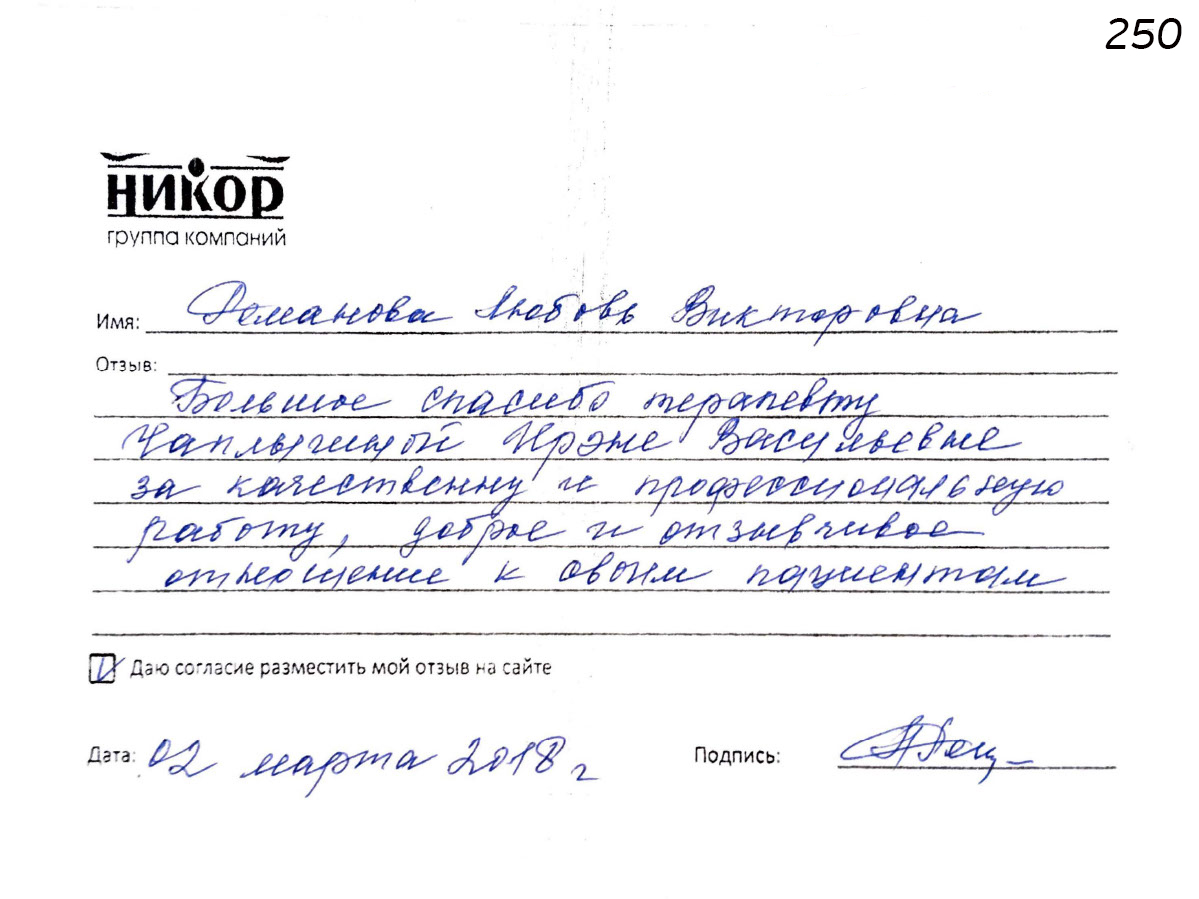 250
НИКОР
группа компаний
Имя: Романова Любовь Викторовна
Отзыв:
Большое спасибо терапевту
Чаплыгиной Ирэне Васильевне
за качественну и профессиональную
работу, доброе и отзывчивое
отношение к своим пациентам
Даю согласие разместить мой отзыв на сайте
Дата: 02 марта 2018 г
Подпись: